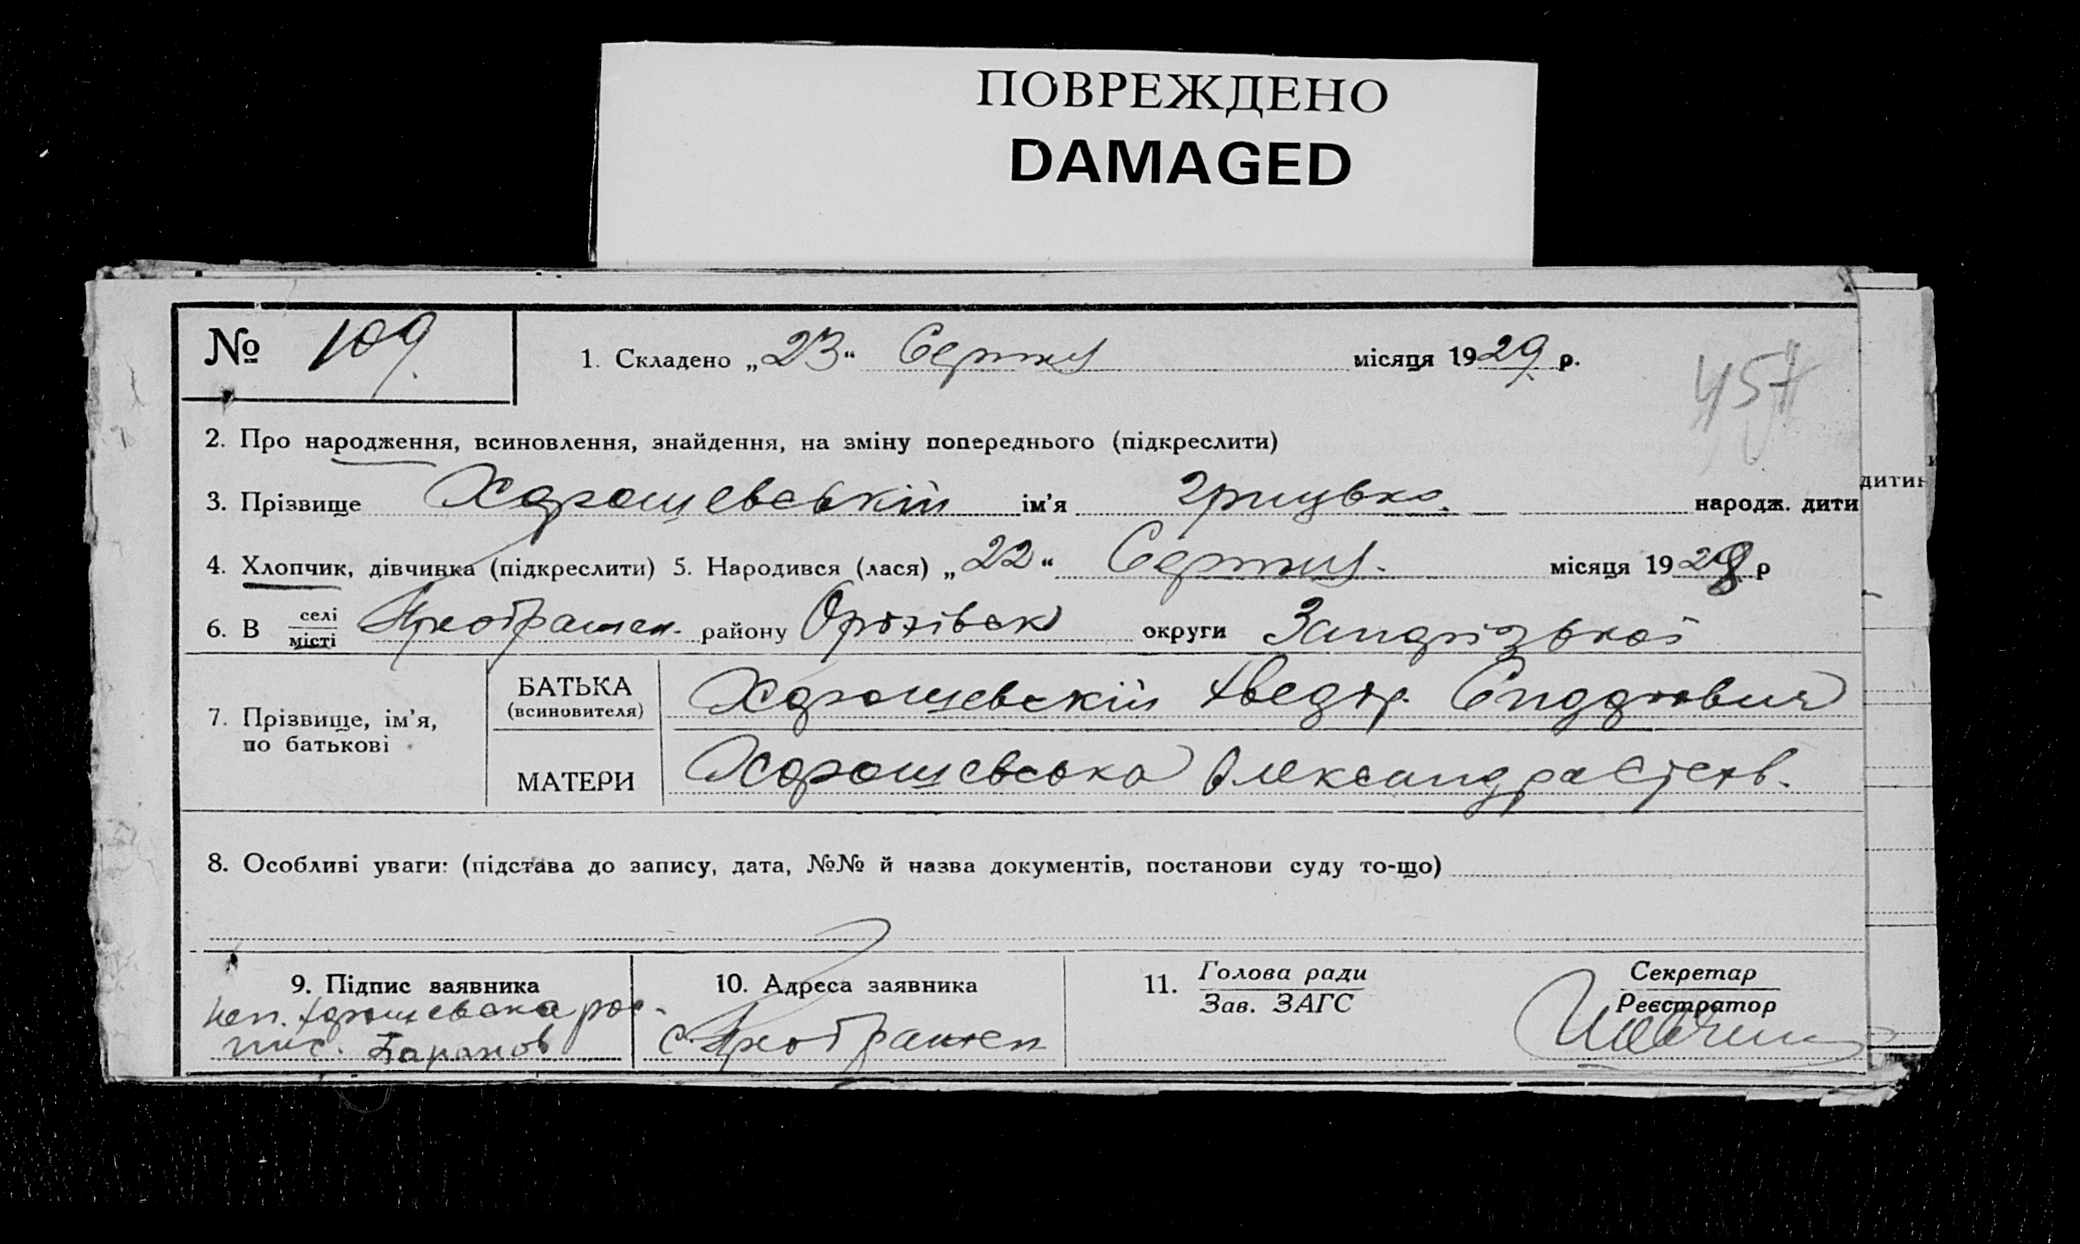 ПОВРЕЖДЕНО
DAMAGED
№ 109.
1. Складено „23“ Серпня місяця 1929 р.
457
2. Про народження, всиновлення, знайдення, на зміну попереднього (підкреслити)
3. Прізвище Харошевській ім’я Грицько. народж. дити
дитин
4. Хлопчик, дівчинка (підкреслити) 5. Народився (лася) „22“ Серпня. місяця 1928 р
6. В селі місті Преображен. району Оріхівск округи Запорізької
7. Прізвище, ім’я, по батькові
БАТЬКА (всиновителя) Харошевскій Хведор
МАТЕРИ Харошевська Александра
8. Особливі уваги: (підстава до запису, дата, №№ й назва документів, постанови суду то-що)
9. Підпис заявника
10. Адреса заявника
11. Голова ради
Зав. ЗАГС
Секретар
Реєстратор
неп. Харошевська рос-
пис. Баранов
с Преображен